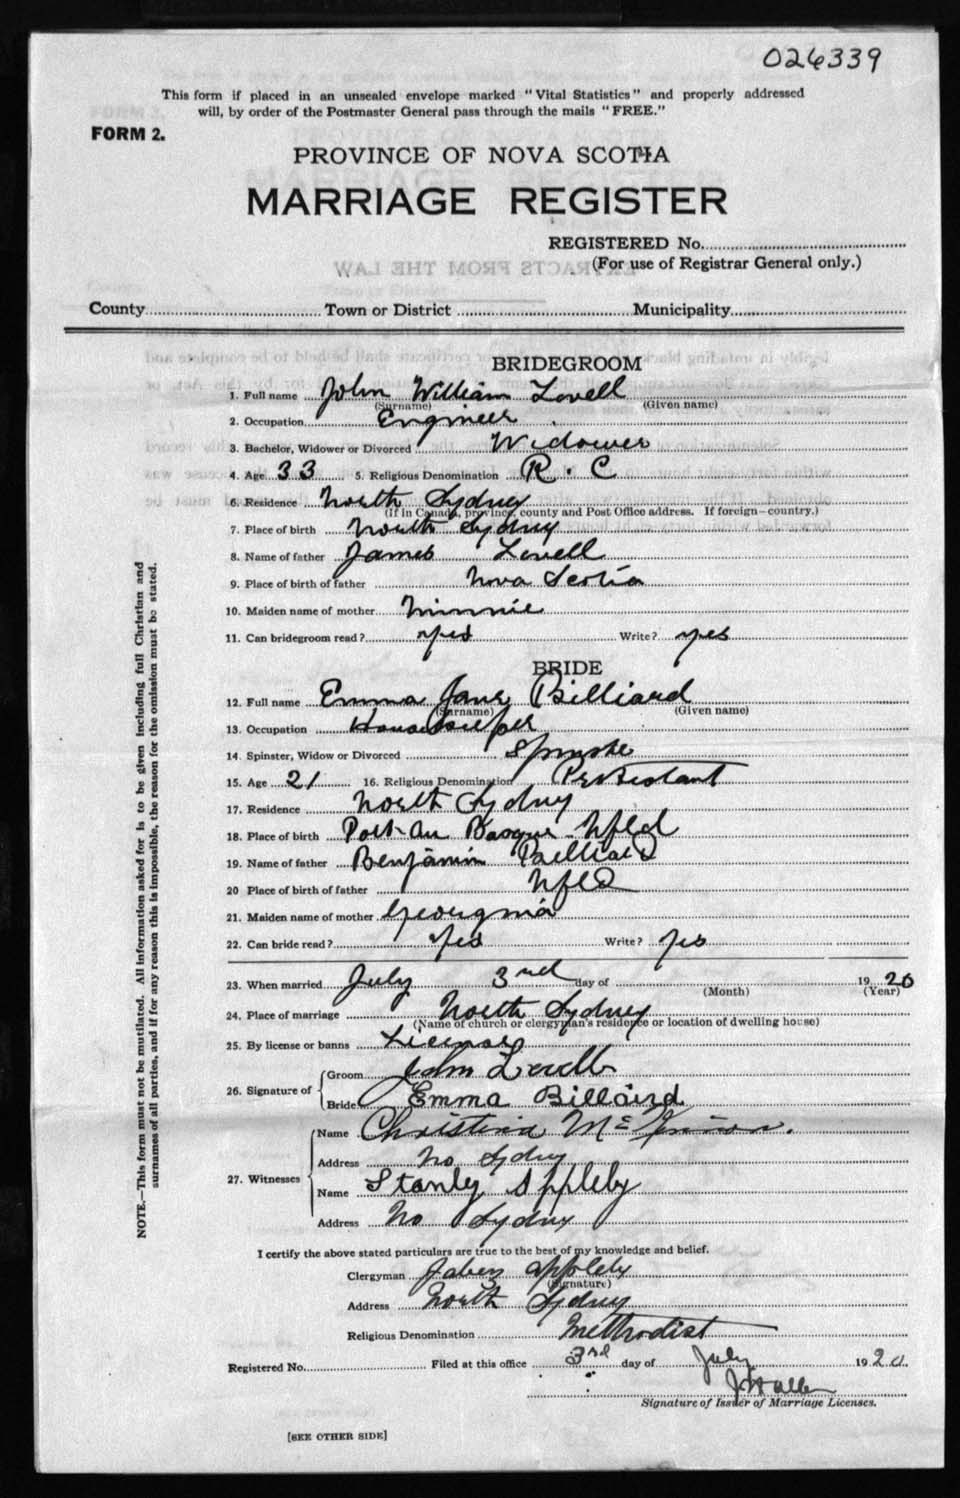 026339
This form if placed in an unsealed envelope marked "Vital Statistics" and properly addressed
will, by order of the Postmaster General pass through the mails "FREE."
FORM 2.
PROVINCE OF NOVA SCOTIA
MARRIAGE REGISTER
REGISTERED No.
(For use of Registrar General only.)
EXTRACTS FROM THE LAW
County Town or District Municipality
BRIDEGROOM
1. Full name John William Lovell
(Surname) (Given name)
2. Occupation Engineer
3. Bachelor, Widower or Divorced Widower
4. Age 33 5. Religious Denomination R. C
6. Residence North Sydney
(If in Canada, province, county and Post Office address. If foreign—country.)
7. Place of birth North Sydney
8. Name of father James Lovell
9. Place of birth of father Nova Scotia
10. Maiden name of mother Minnie
11. Can bridegroom read? yes Write? yes
BRIDE
12. Full name Emma Jane Billiard
(Surname) (Given name)
13. Occupation Housekeeper
14. Spinster, Widow or Divorced
15. Age 21 16. Religious Denomination Protestant
17. Residence North Sydney
18. Place of birth Port-au Basque Nfld
19. Name of father Benjamin Billiard
20 Place of birth of father Nfld
21. Maiden name of mother Georgina
22. Can bride read? Yes Write? Yes
23. When married July 3rd day of 1920
(Month) (Year)
24. Place of marriage North Sydney
(Name of church or clergyman's residence or location of dwelling house)
25. By license or banns License
26. Signature of Groom John Lovell
Bride Emma Billard
27. Witnesses Name Christina
Address No Sydney
Name Stanly Appleby
Address No Sydney
I certify the above stated particulars are true to the best of my knowledge and belief.
Clergyman Jabez Appleby
(Signature)
Address North Sydney
Religious Denomination Methodist
Registered No. Filed at this office 3rd day of July 1920
Signature of Issuer of Marriage Licenses.
[SEE OTHER SIDE]
NOTE.—This form must not be mutilated. All information asked for is to be given including full Christian and
surnames of all parties, and if for any reason this is impossible, the reason for the omission must be stated.